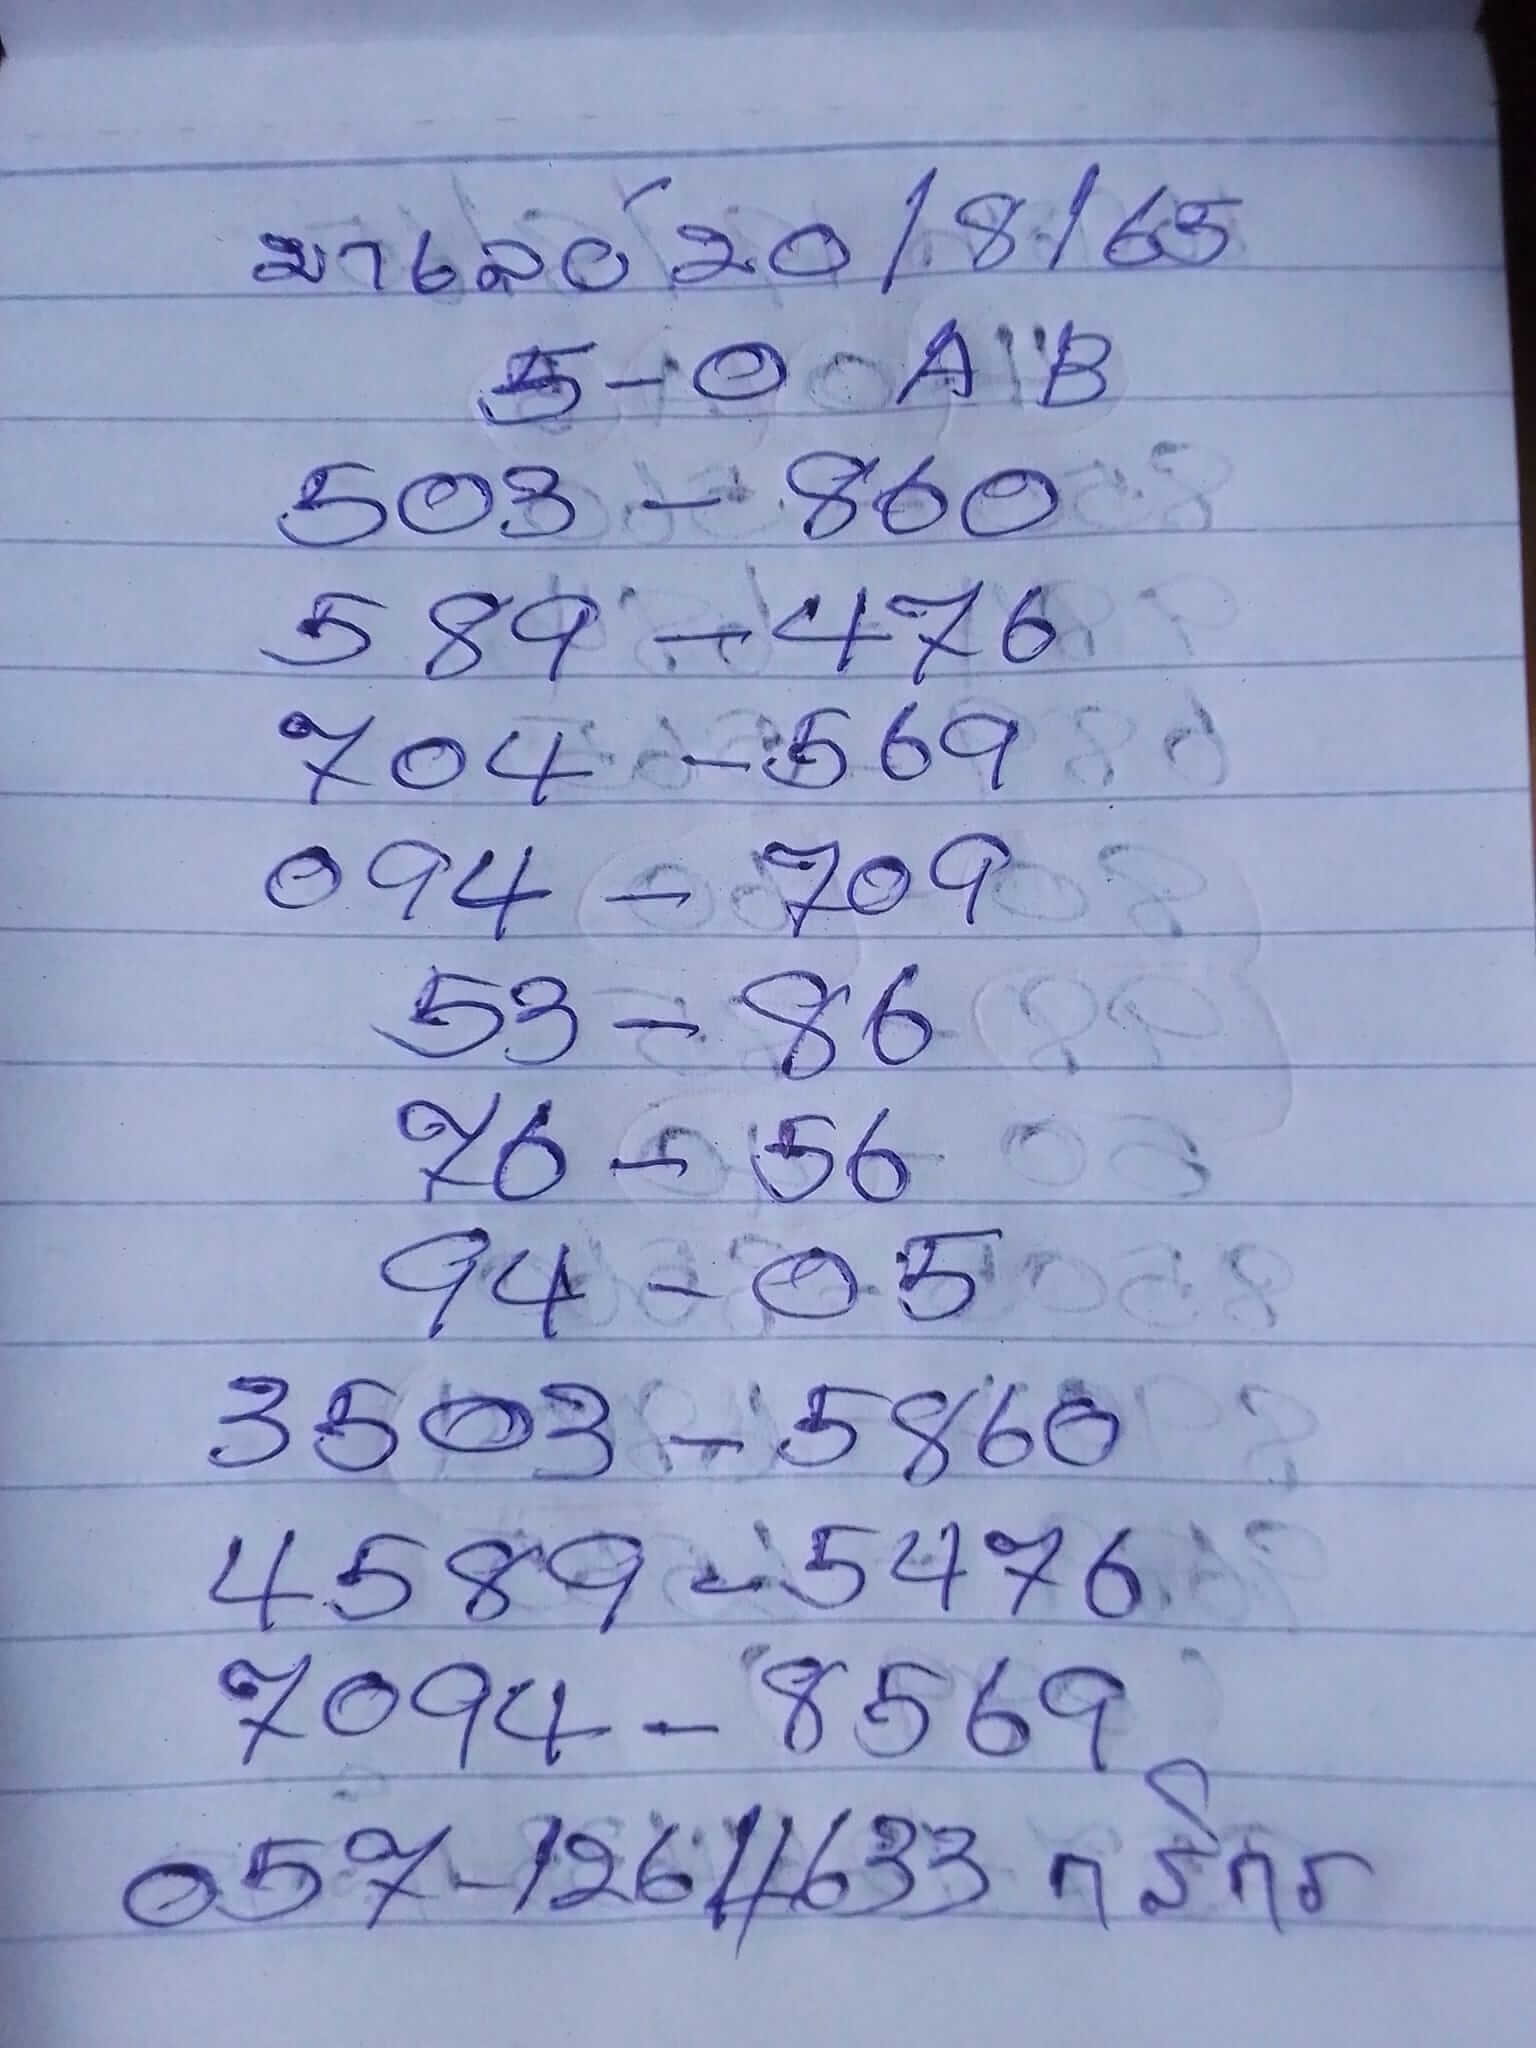 มาเลย์ 20/8/65
5-0 A B
503 - 860
589 - 476
704 - 569
094 - 709
53 - 86
76 - 56
94 - 05
3503 - 5860
4589 - 5476
7094 - 8569
057-1261/1633